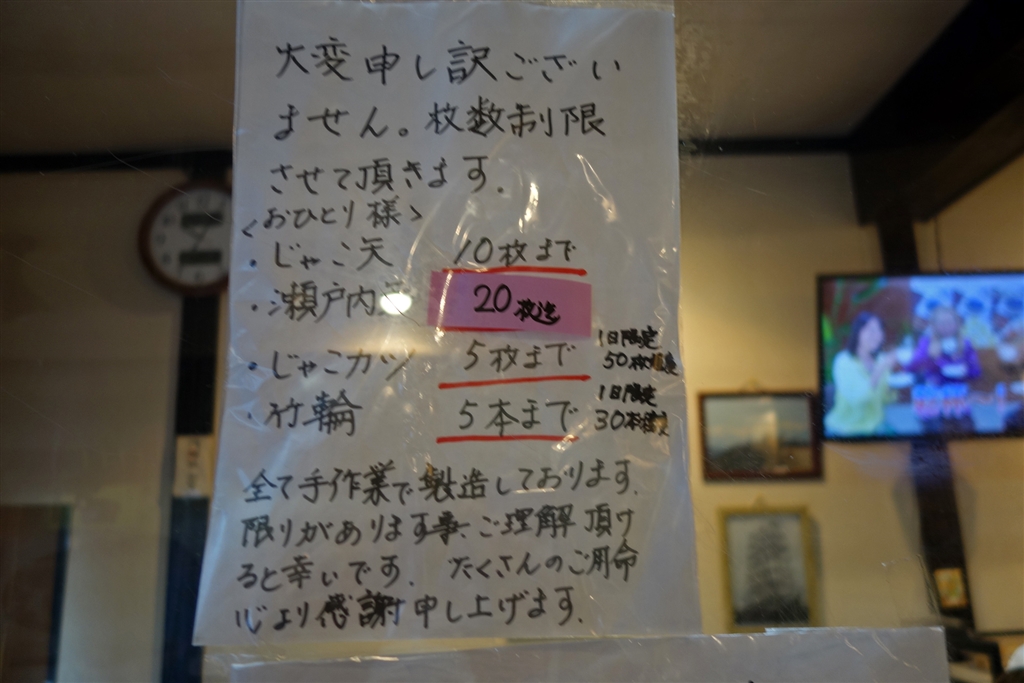 大変申し訳ござい
ません。枚数制限
させて頂きます.
<おひとり様>
・じゃこ天 10枚まで
・瀬戸内 20枚迄
・じゃこカツ 5枚まで 1日限定 50枚
・竹輪 5本まで 1日限定 30本
全て手作業で製造しております.
限りがあります事、ご理解頂け
ると幸いです. たくさんのご用命
心より感謝申し上げます.